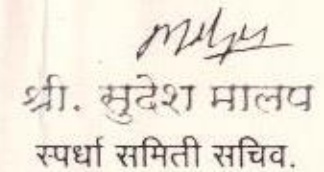 श्री. सुदेश मालप
स्पर्धा समिती सचिव.